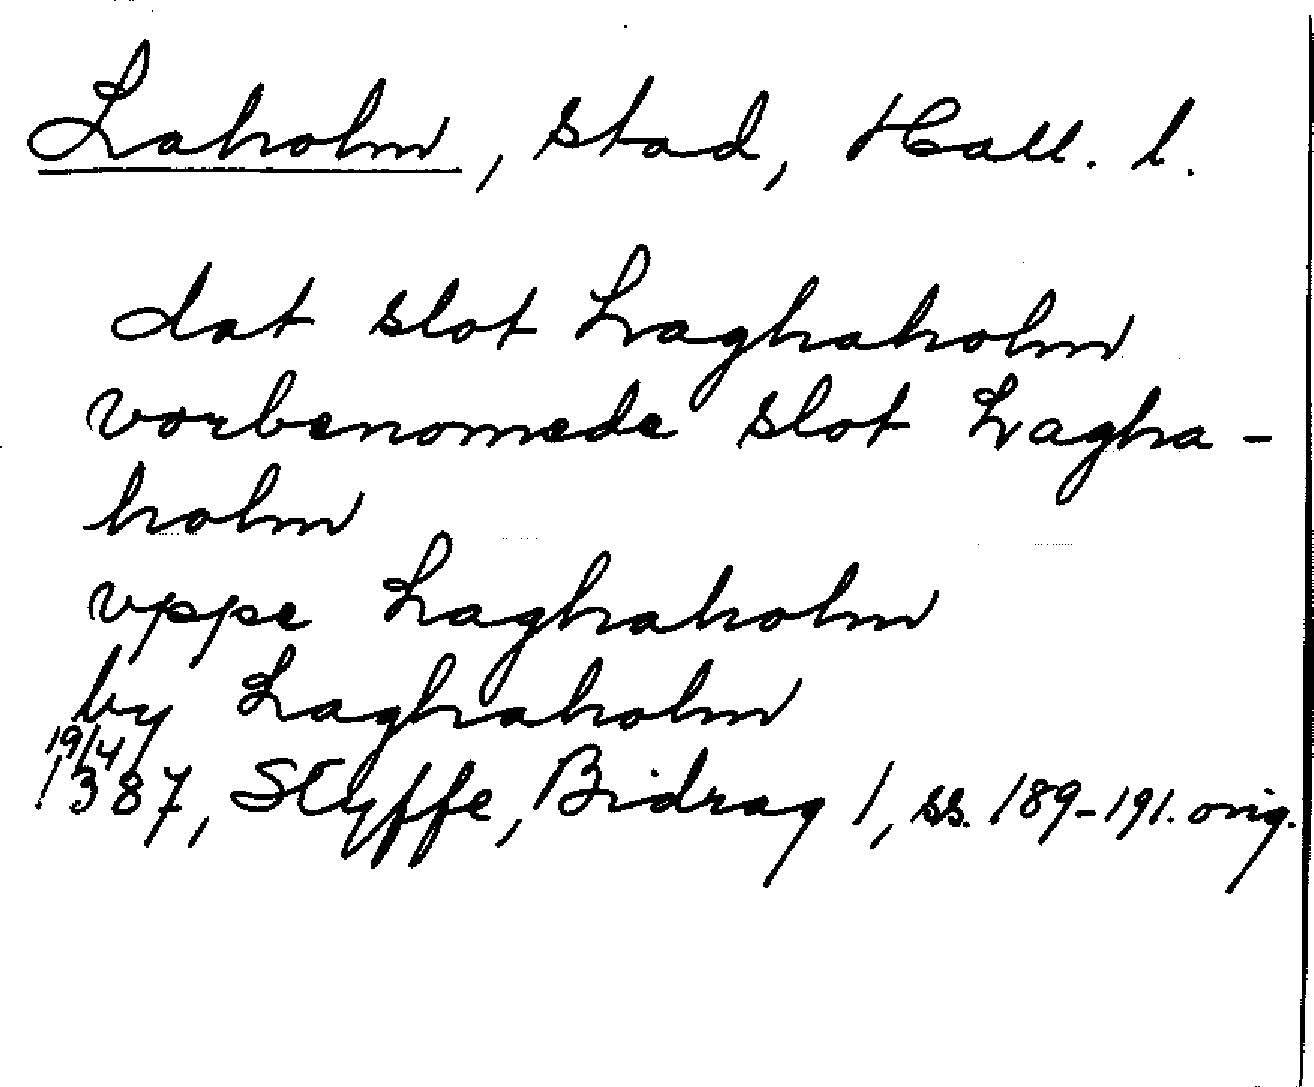 Laholm, stad, Hall. l.
dat slot Laghaholm
vorbenomede slot Lagha-
holm
vppe Laghaholm
by Laghaholm
19/4
1387, Styffe, Bidrag 1, ss. 189-191. orig.